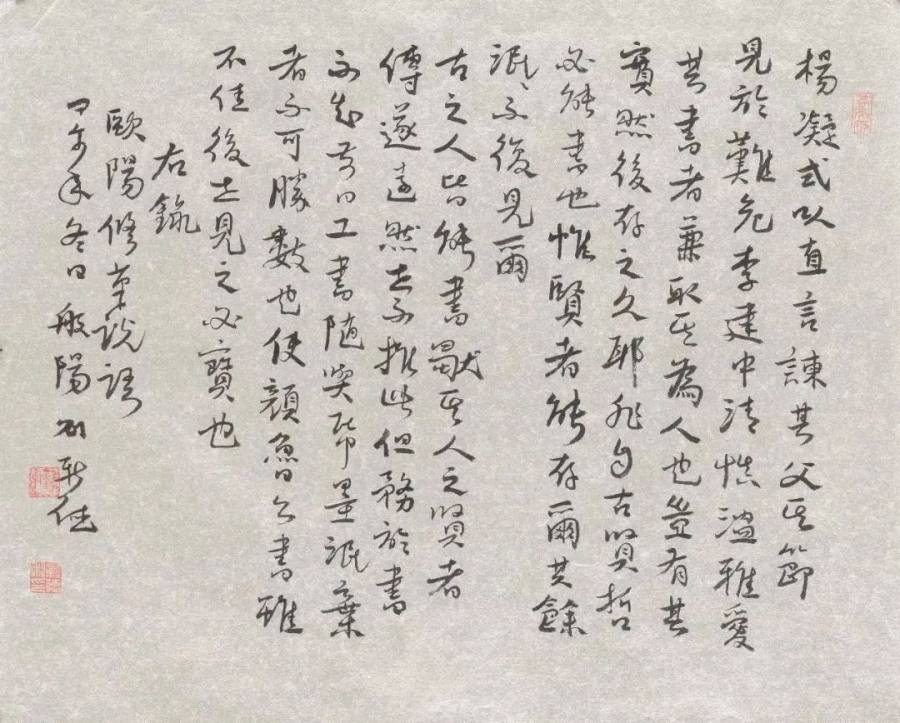 楊凝式以直言諫其父其節
見於難危李建中清慎溫雅愛
其書者兼取其為人也豈有其
實然後存之久耶非自古賢哲
必能書也惟賢者能存爾其餘
泯泯不復見爾
古之人皆能書獨其人之賢者
傳遂遠然世不推此但務於書
不知前日工書隨與紙墨泯棄
者不可勝數也使顏魯公書雖
不佳後世見之必寶也
右錄
歐陽修筆說語
年冬日般陽